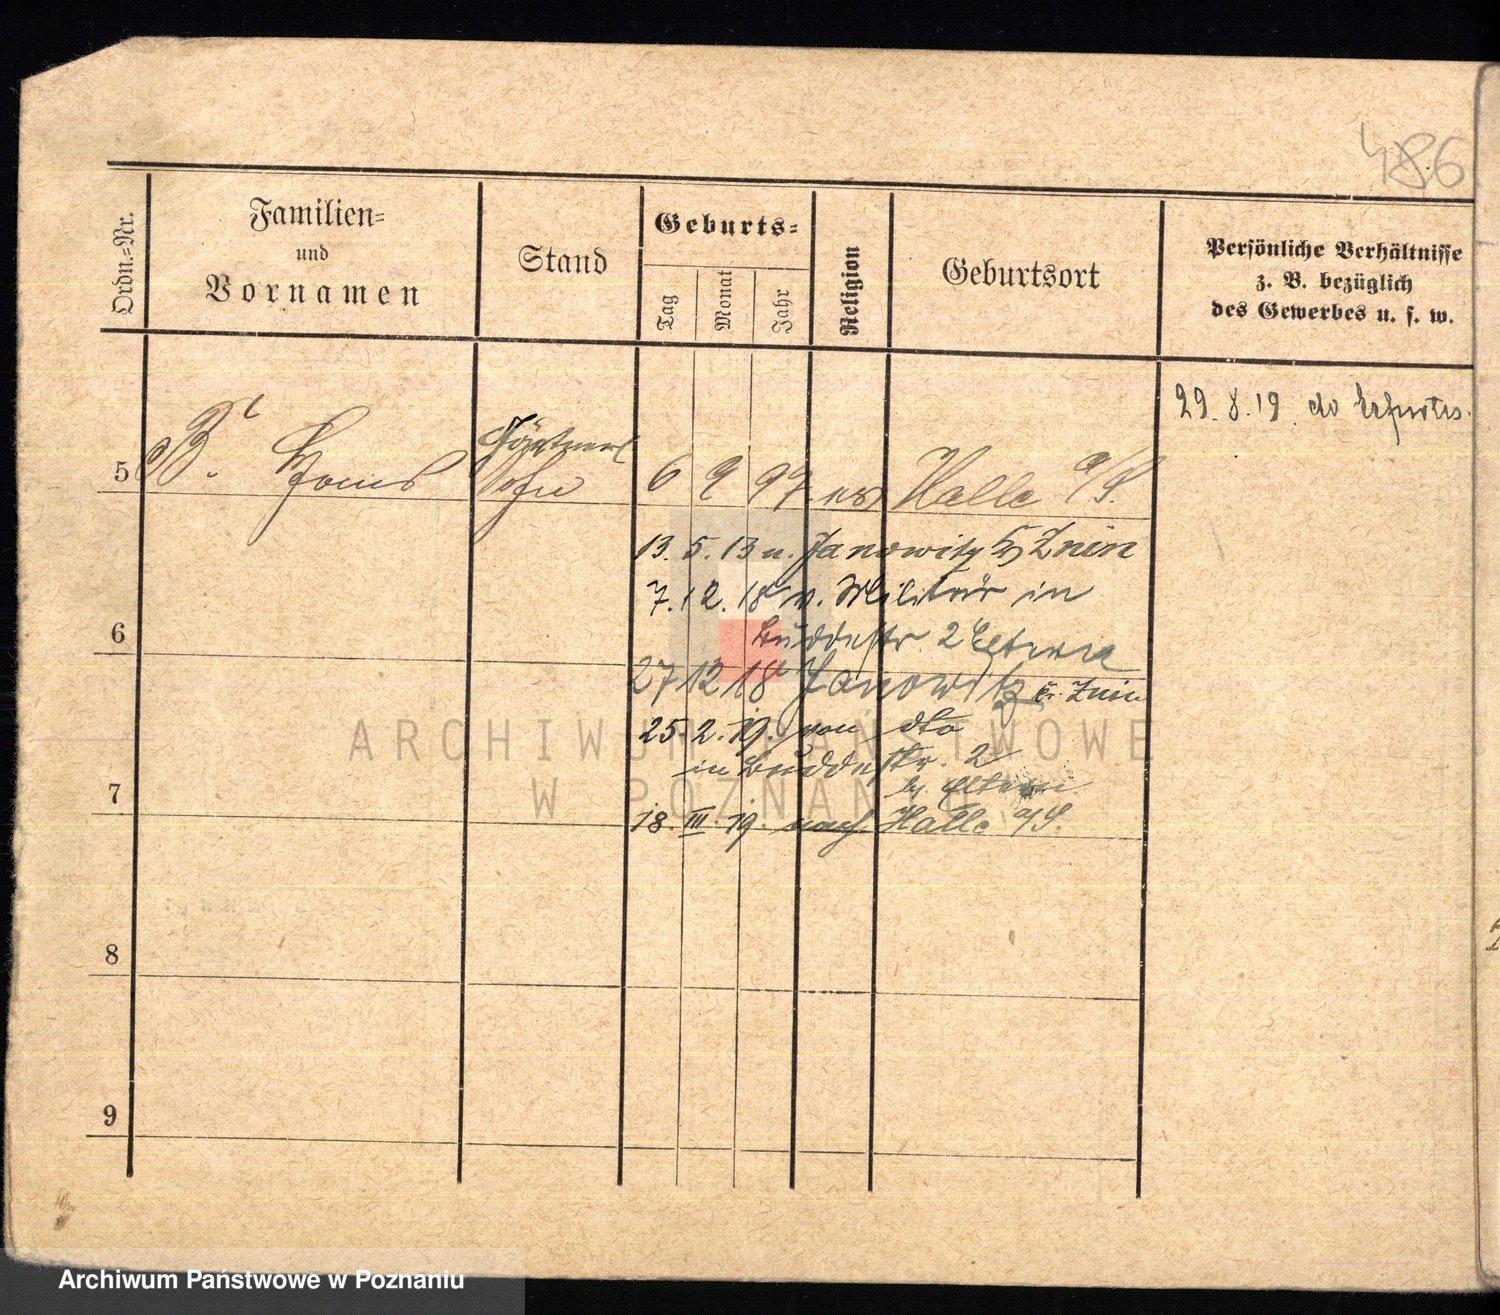 486
Ordn.-Nr.
Familien-
und
Vornamen
Stand
Geburts-
Tag
Monat
Jahr
Religion
Geburtsort
Persönliche Verhältnisse
z. B. bezüglich
des Gewerbes u. s. w.
29. 8. 19. do
5
B. Hans
Gärtner
6 9 97 Halle a/S.
13. 5. 13 n. Janowitz Znin
7. 12. 18 v. Militär in
6
Buddestr. 2 Eltern
27 12 18 Janowitz Kr. Znin
25. 2. 19. von dto
in Buddestr. 2
b. Eltern
7
18. III. 19. nach Halle a/S.
8
9
ARCHIWUM PAŃSTWOWE
W POZNANIU
Archiwum Państwowe w Poznaniu